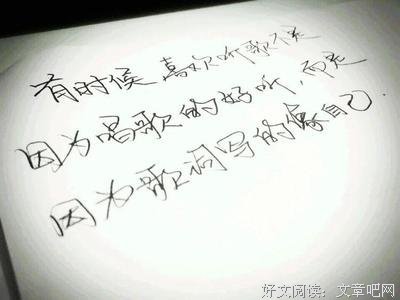 有时候 喜欢听歌不是
因为唱歌的好听，而是
因为歌词写的像自己.
好文阅读：文章吧网